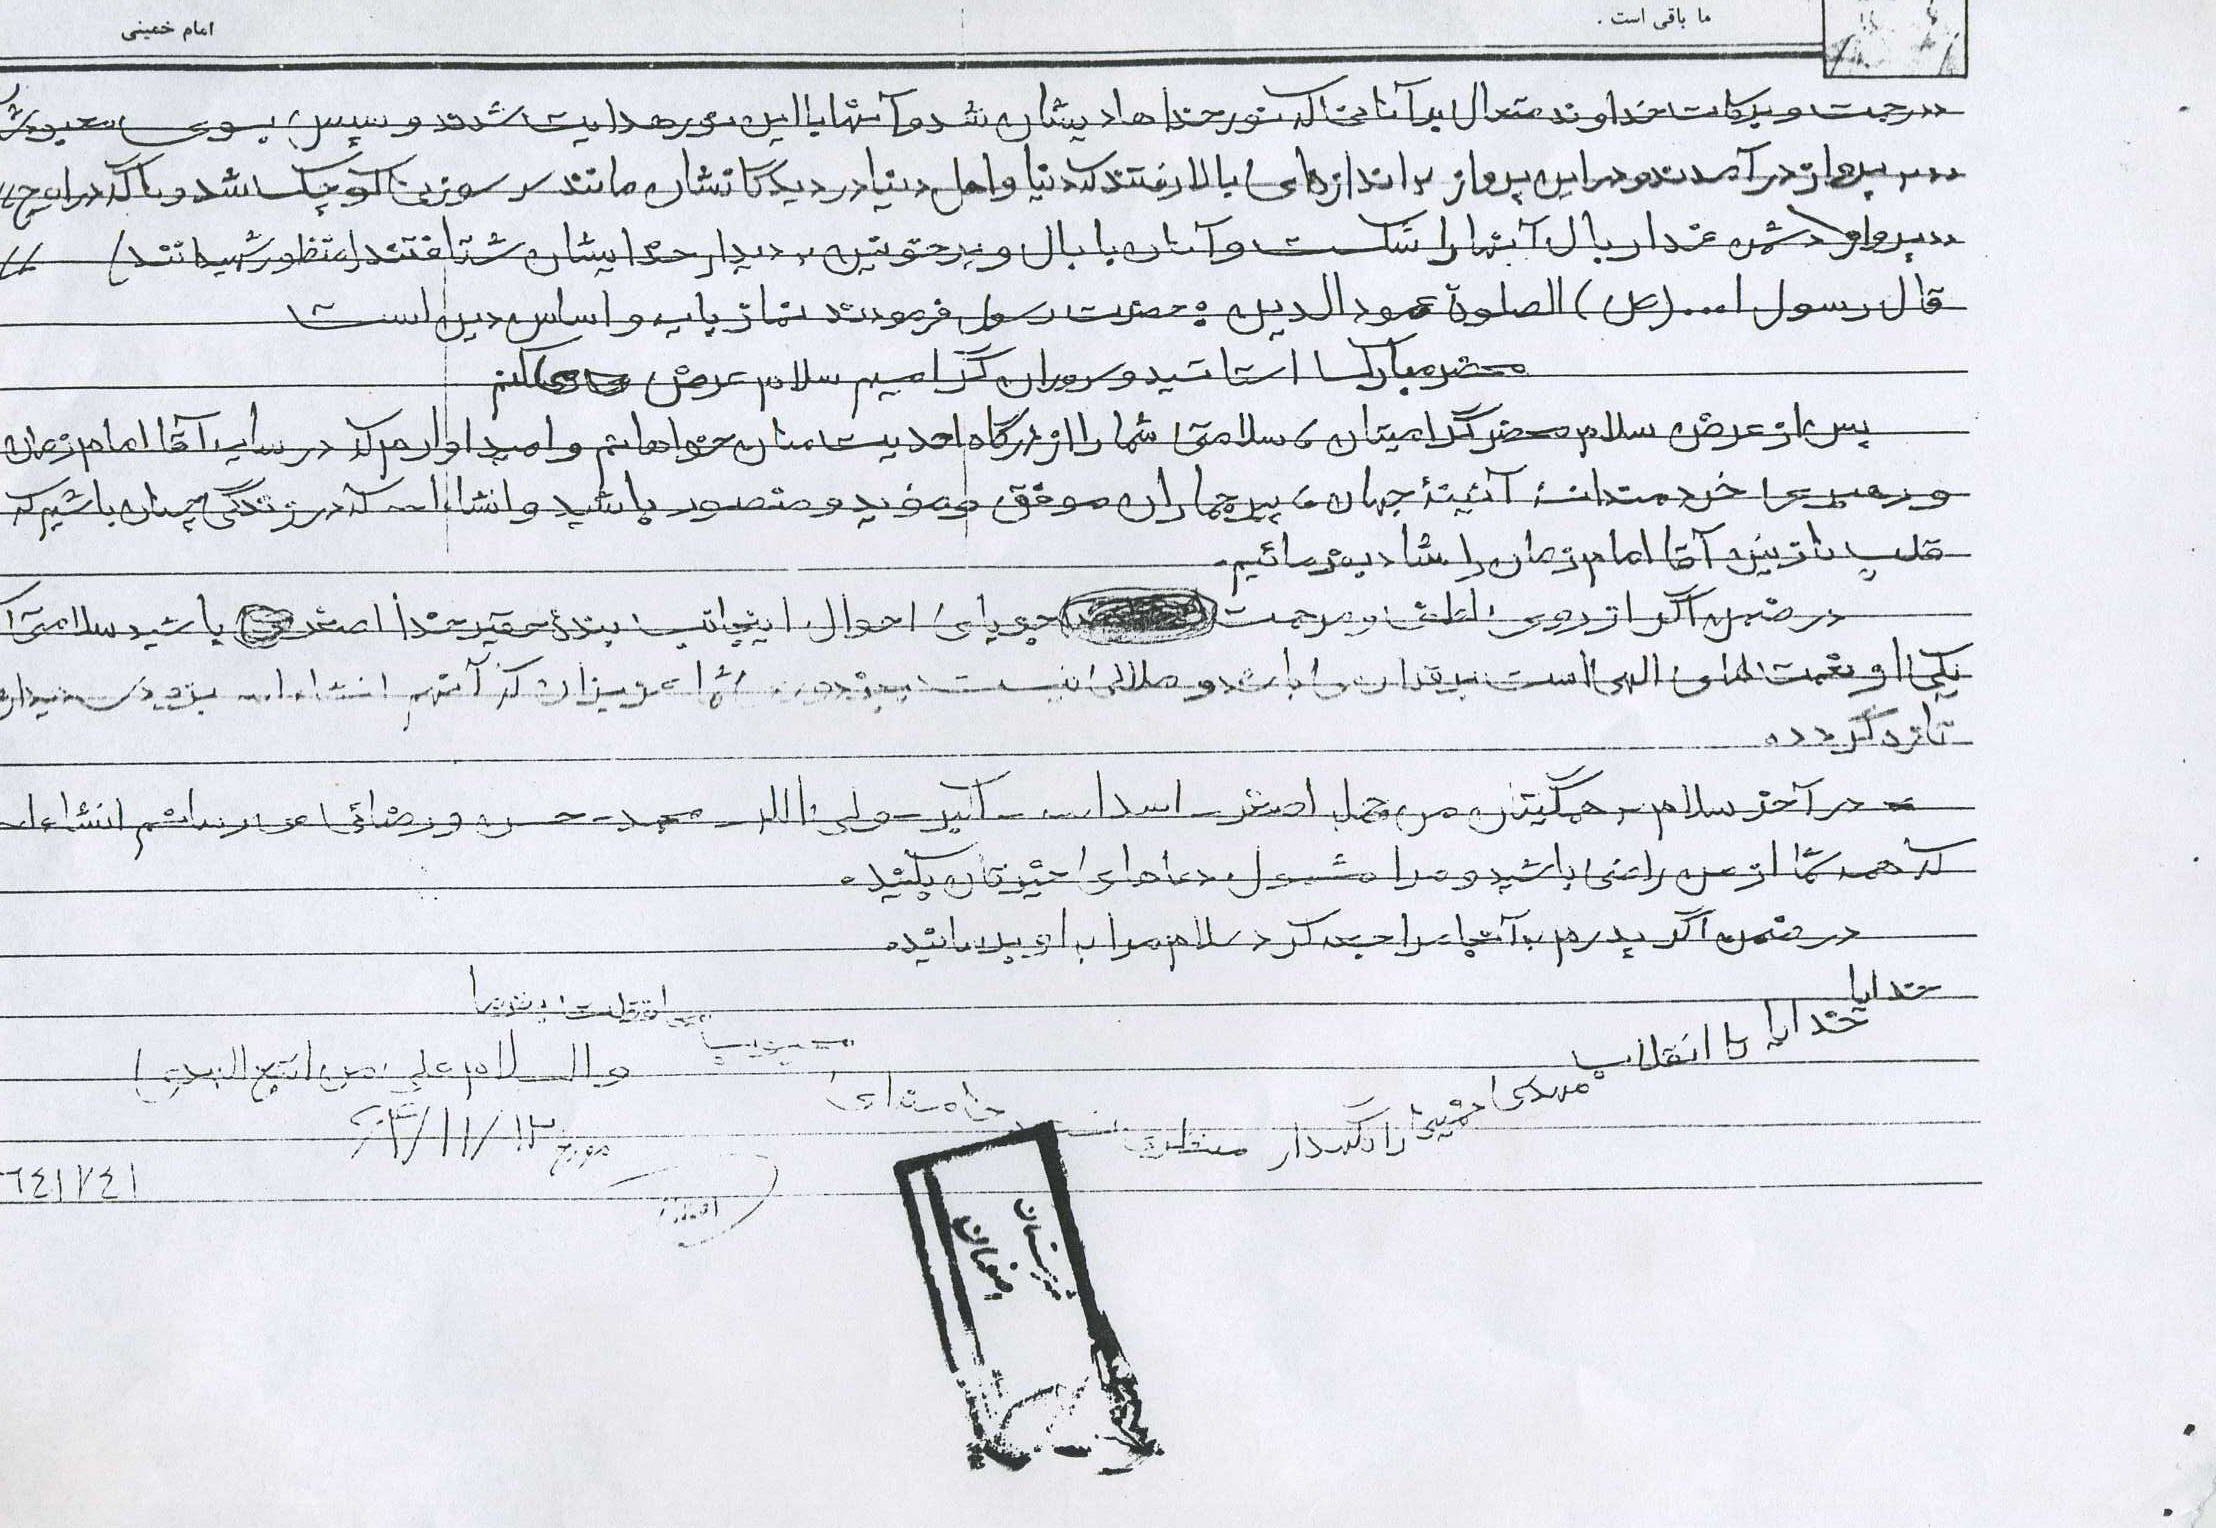 ما باقی است .
امام خمینی
رحمت و برکات خداوند متعال بر آنانی که نور خدا هادیشان شد و آنها با این نور هدایت شدند و سپس بسوی معبودش
به پرواز در آمدند و در این پرواز به اندازه‌ای بالا رفتند که دنیا و اهل دنیا در دیدگانشان مانند سر سوزنی کوچک شد و ناگه در اوج
پرواز دشمن غدار بال آنها را شکست و آنان با بال و پر خونین به دیدار خدایشان شتافتند (منظور شهیدانند)
قال رسول ا... (ص) الصلوة عمود الدین : حضرت رسول فرمودند نماز پایه و اساس دین است
محضر مبارک اساتید و سروران گرامیم سلام عرض می‌کنم
پس از عرض سلام محضر گرامیتان ، سلامتی شما را از درگاه احدیت منان خواهانم و امیدوارم که در سایه آقا امام زمان
و رهبری خردمندانهٔ آئینهٔ جهان ، پیر جماران موفق و مؤید و منصور باشید و انشاءا... که در زندگی چنان باشیم که
قلب نازنین آقا امام زمان را شاد بفرمائیم.
در ضمن اگر از روی لطف و مرحمت جویای احوال اینجانب بندهٔ حقیر خدا اصغر باشید سلامتی که
یکی از نعمت های الهی است برقرار می باشد و ملالی نیست بجز دوری شما عزیزان که آنهم انشاءا... بزودی دیدار
تازه گردد.
در آخر سلام به همگیتان من جمله اصغر - اسدا... - اکبر - ولی الله - محمد - حسن و رضائی می رسانم انشاءا...
که همه شما از من راضی باشید و مرا مشمول دعاهای خیرتان بکنید.
در ضمن اگر پدرم به آنجا مراجعه کرد سلام مرا به او برسانید.
خدایا
خدایا تا انقلاب مهدی خمینی را نگهدار منتظری
خامنه‌ای
والسلام علی من اتبع الهدی
مورخ ۶۴/۱۱/۱۲